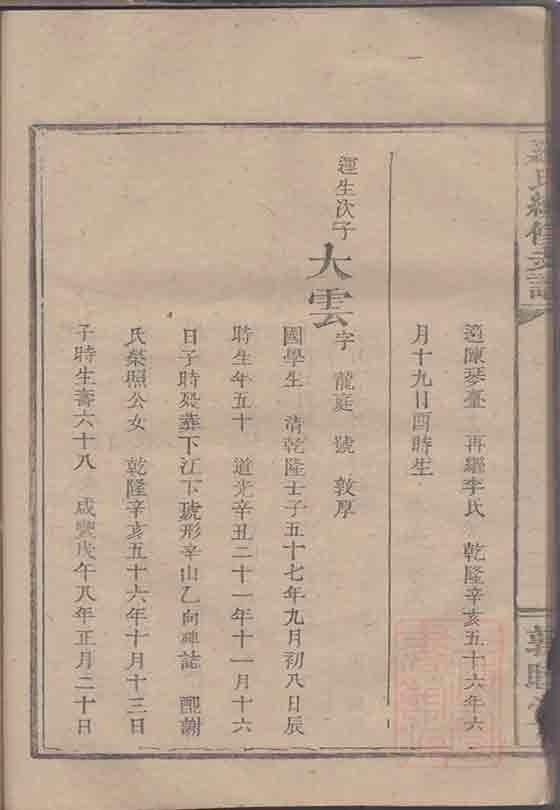 氏續修支譜
適陳琴臺 再繼李氏 乾隆辛亥五十六年六
月十九日酉時生
運生次子
大雲 字 龍庭 號 敦厚
國學生 清乾隆壬子五十七年九月初八日辰
時生年五十 道光辛丑二十一年十一月十六
日子時歿葬下江下號形辛山乙向碑誌 配謝
氏榮照公女 乾隆辛亥五十六年十月十三日
子時生壽六十八 咸豐戊午八年正月二十日
敦睦